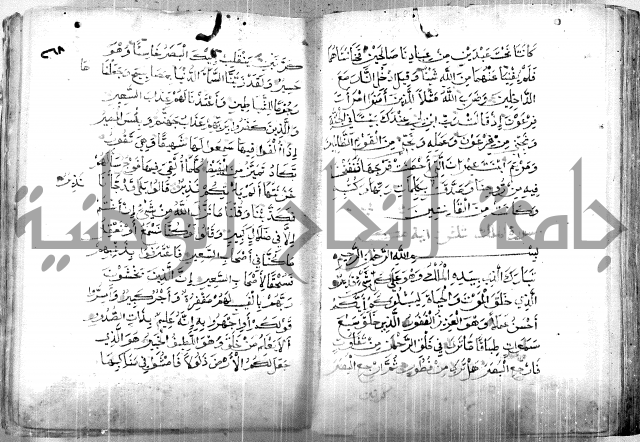 كانتا تحت عبدين من عبادنا صالحين فخانتاهما
فلم يغنيا عنهما من الله شيئا وقيل ادخلا النار مع
الداخلين وضرب الله مثلا للذين آمنوا امرأت
فرعون إذ قالت رب ابن لي عندك بيتا في الجنة
ونجني من فرعون وعمله ونجني من القوم الظالمين
ومريم ابنت عمران التي أحصنت فرجها فنفخنا
فيه من روحنا وصدقت بكلمات ربها وكتبه
وكانت من القانتين
سورة الملك
بسم الله الرحمن الرحيم
تبارك الذي بيده الملك وهو على كل شيء قدير
الذي خلق الموت والحياة ليبلوكم أيكم
أحسن عملا وهو العزيز الغفور الذي خلق سبع
سماوات طباقا ما ترى في خلق الرحمن من تفاوت
فارجع البصر هل ترى من فطور ثم ارجع البصر
كرتين
٢٦٨
كرتين ينقلب إليك البصر خاسئا وهو
حسير ولقد زينا السماء الدنيا بمصابيح وجعلناها
رجوما للشياطين وأعتدنا لهم عذاب السعير
والذين كفروا بربهم عذاب جهنم وبئس المصير
إذا ألقوا فيها سمعوا لها شهيقا وهي تفور
تكاد تميز من الغيظ كلما ألقي فيها فوج سألهم
خزنتها ألم يأتكم نذير قالوا بلى قد جاءنا
نذير
فكذبنا وقلنا ما نزل الله من شيء إن أنتم
إلا في ضلال كبير وقالوا لو كنا نسمع أو نعقل
ما كنا في أصحاب السعير فاعترفوا بذنبهم
فسحقا لأصحاب السعير إن الذين يخشون
ربهم بالغيب لهم مغفرة وأجر كبير وأسروا
قولكم أو اجهروا به إنه عليم بذات الصدور
ألا يعلم من خلق وهو اللطيف الخبير هو الذي
جعل لكم الأرض ذلولا فامشوا في مناكبها
جامعة النجاح الوطنية